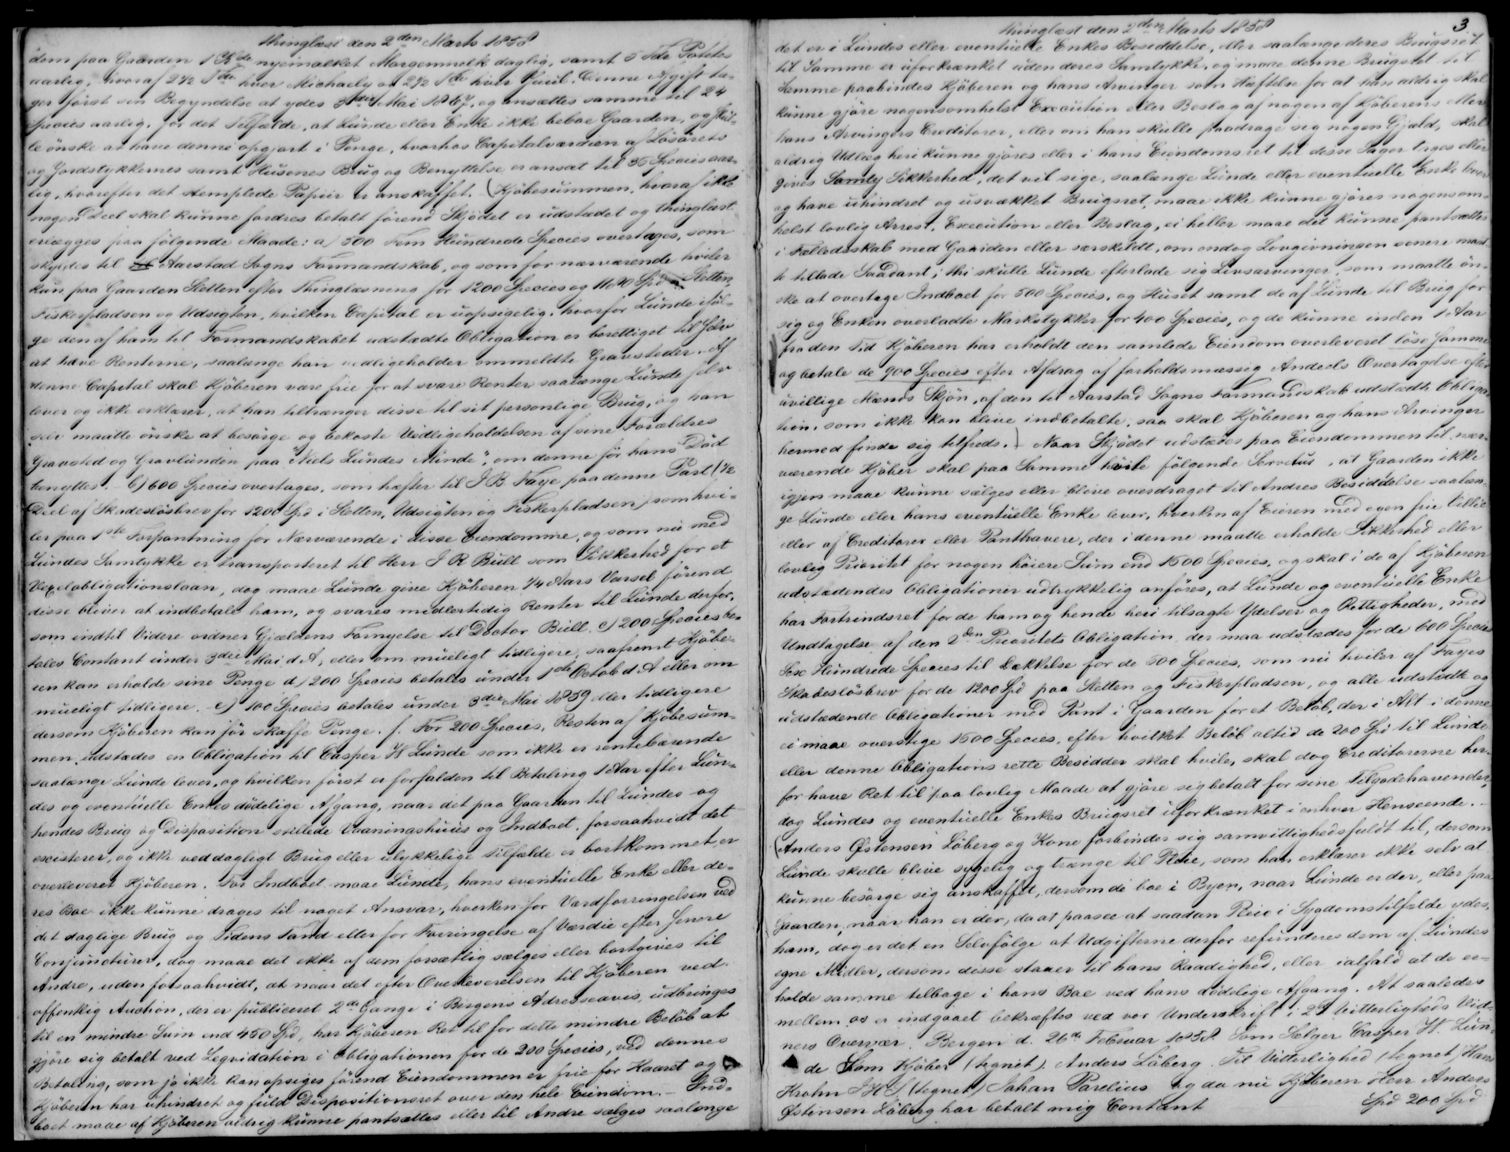 Thinglæst den 2den Marts 1858
dem paa Gaarden 1 Kde nyeimalket Morgenmelk daglig, samt 5 Tdr Poteter
aarlig, hvoraf 2½ Tde hver Michaely og 2½ Tde hver Juul. Denne Afgift ta-
ger først sin Begyndelse at ydes 3die Mai 1867, og ansættes samme til 24
Species aarlig, for det Tilfælde, at Lunde eller Enke ikke beboe Gaarden, og skul-
le ønske at have denne opgjort i Penge, hvorhos Capitalværdien af Løsørets
og Jordstykkernes samt Husenes Brug og Benyttelse er ansat til 36 Species aar-
lig, hvorefter det stemplede Papiir er anskaffet. (Kjøbesummen, hvoraf ikke
nogen Deel skal kunne fordres betalt førend Skjødet er udstedet og thinglæst
erlægges paa følgende Maade: a) 500 Fem Hundrede Species overtages, som
skyldes til Aarstad Sogns Formandskab, og som for nærværende hviler
kun paa Gaarden Sletten efter Thinglæsning for 1200 Species og 1140 Spd i Sletten,
Fiskerpladsen og Udsigten, hvilken Capital er uopsigelig, hvorfor Lunde iføl-
ge den af ham til Formandskabet udstædte Obligation er berettiget til selv
at hæve Renterne, saalænge han vedligeholder ommeldte Gravsteder. Af
denne Capital skal Kjøberen være frie for at svare Renter saalænge Lunde selv
lever og ikke erklærer, at han tiltrænger disse til sit personlige Brug, og han
selv maatte ønske at besørge og bekoste Vedligeholdelsen af sine Forældres
Gravsted og Gravlunden paa "Niels Lundes Minde", om denne før hans Død
benyttes. b) 600 Species overtages, som hæfter til J B Faye paa denne Post (½
Deel af Skadesløsbrev for 1200 Spd i Sletten, Udsigten og Fiskerpladsen) som hvi-
ler paa 1ste Forpantning for Nærværende i disse Eiendomme, og som nu med
Lundes Samtykke er transporteret til Herr J R Bull som Sikkerhed for et
Vexelobligationslaan, dog maae Lunde give Kjøberen ¼ Aars Varsel førend
disse bliver at indbetale ham, og svares medlertidig Renter til Lunde derfor,
som indtil Videre ordner Gjældens Fornyelse til Doctor Bull. c) 200 Species be-
tales Contant under 3die Mai d A, eller om mueligt tidligere, saafremt Kjøbe-
ren kan erholde sine Penge d) 200 Species betales under 1ste Octob d A eller om
mueligt tidligere. e) 100 Species betales under 3die Mai 1859 eller tidligere
dersom Kjøberen kan før skaffe Penge. f. For 200 Species, Resten af Kjøbesum-
men, udstædes en Obligation til Casper W Lunde som ikke er rentebærende
saalænge Lunde lever, og hvilken først er forfalden til Betaling 1 Aar efter Lun-
des og eventuelle Enkes dødelige Afgang, naar det paa Gaarden til Lundes og
hendes Brug og Disposition stillede Vaaningshuus og Indboet, forsaahvidt det
existerer, og ikke ved dagligt Brug eller ulykkelige Tilfælde er bortkommet, er
overleveret Kjøberen. For Indboet maae Lunde, hans eventuelle Enke eller de-
res Boe ikke kunne drages til noget Ansvar, hverken for Værdforringelsen ved
det daglige Brug og Tidens Tand eller for Forringelse af Værdie efter senere
Conjuncturer, dog maae det ikke af dem forsætlig sælges eller bortgives til
Andre, uden forsaahvidt, at naar det efter Overleverelsen til Kjøberen ved
offentlig Auction, der er publiceret 2de Gange i Bergens Adresseavis, udbringes
til en mindre Sum end 450 Spd, har Kjøberen Ret til for dette mindre Beløb at
gjøre sig betalt ved Liqvidation i Obligationen for de 200 Species, ved dennes
Betaling, som jo ikke kan opsiges førend Eiendommen er frie for Kaaret og
Kjøberen har uhindret og fuld Dispositionsret over den hele Eiendom. Ind-
boet maae af Kjøberen aldrig kunne pantsættes eller til Andre sælges saalænge
Thinglæst den 2den Marts 1858
3.
det er i Lundes eller eventuelle Enkes Besiddelse, eller saalænge deres Brugsret
til Samme er uforkrænket uden deres Samtykke, og maae denne Brugsret til
Samme paabindes Kjøberen og hans Arvinger som Hæftelse for at han aldrig skal
kunne gjøre nogensomhelst Execution eller Beslag af nogen af Kjøberens eller
hans Arvingers Creditorer, eller om han skulle paadrage sig nogen Gjæld, skal
aldrig Udlæg heri kunne gjøres eller i hans Eiendomsret til disse Sager tages eller
gives Samty Sikkerhed, det vil sige, saalænge Lunde eller eventuelle Enke lever
og have uhindret og usvækket Brugsret, maae ikke kunne gjøres nogensom-
helst lovlig Arrest, Execution eller Beslag, ei heller maae det kunne pantsættes
i Fælledsskab med Gaarden eller særskildt, om endog Lovgivningen senere maat-
te tillade Saadant; thi skulle Lunde efterlade sig Livsarvinger, som maatte øn-
ske at overtage Indboet for 500 Species, og Huset samt de af Lunde til Brug for
sig og Enken overladte Markstykker for 400 Species, og de kunne inden 1 Aar
fra den Tid Kjøberen har erholdt den samlede Eiendom overleveret løse Samme
og betale de 900 Species efter Afdrag af forholdsmæssig Andeels Overtagelse efter
uvillige Mænds Skjøn, af den til Aarstad Sogns Formandskab udstædte Obliga-
tion, som ikke kan blive indbetalte, saa skal Kjøberen og hans Arvinger
hermed finde sig tilfreds.) Naar Skjødet udstædes paa Eiendommen til nær-
værende Kjøber skal paa Samme hvile følgende Servitut, at Gaarden ikke
igjen maae kunne sælges eller blive overdraget til Andres Besiddelse saalæn-
ge Lunde eller hans eventuelle Enke lever, hverken af Eieren med egen frie Villie
eller af Creditorer eller Panthavere, der i denne maatte erholde Sikkerhed eller
lovlig Prioritet for nogen høiere Sum end 1600 Species, og skal i de af Kjøberen
udstædendes Obligationer udtrykkelig anføres, at Lunde og eventuelle Enke
har Fortrinsret for de ham og hende heri tilsagte Ydelser og Rettigheder, med
Undtagelse af den 2den Prioritets Obligation der maa udstædes for de 600 Species
Sex Hundrede Species til Dækkelse for de 600 Species, som nu hviler af Fayes
Skadesløsbrev for de 1200 Spd paa Sletten og Fiskerpladsen, og alle udstædte og
udstædende Obligationer med Pant i Gaarden for et Beløb, der i Alt i denne
ei maae overstige 1600 Species, efter hvilket Beløb altid de 200 Spd til Lunde
eller denne Obligations rette Besidder skal hvile, skal dog Creditorerne her-
for have Ret til paa lovlig Maade at gjøre sig betalt for sine Tilgodehavender,
dog Lundes og eventuelle Enkes Brugsret uforkrænket i enhver Henseende.
(Anders Østensen Løberg og Kone forbinder sig samvittighedsfuldt til, dersom
Lunde skulle blive sygelig og trænge til Pleie, som han erklærer ikke selv at
kunne besørge sig anskaffet, dersom de boe i Byen, naar Lunde er der, eller paa
Gaarden, naar han er der, da at paasee at saadan Pleie i Sygdomstilfælde ydes
ham, dog er det en Selvfølge at Udgifterne derfor refunderes dem af Lundes
egne Midler, dersom disse staaer til hans Raadighed, eller ialfald at de er-
holde samme tilbage i hans Boe ved hans dødelige Afgang. At saaledes
mellem os er indgaaet bekræftes ved vor Underskrift i 2de vitterligheds Vid-
ners Overvær. Bergen d. 26de Februar 1858. Som Sælger Casper W. Lun-
de Som Kjøber (tegnet) Anders Løberg. Til Vitterlighed (tegnet) Hans
Krohn (tegnet) Johan Parelius Og da nu Kjøberen Herr Anders
Østensen Løberg har betalt mig Contant Spd 200 Spd